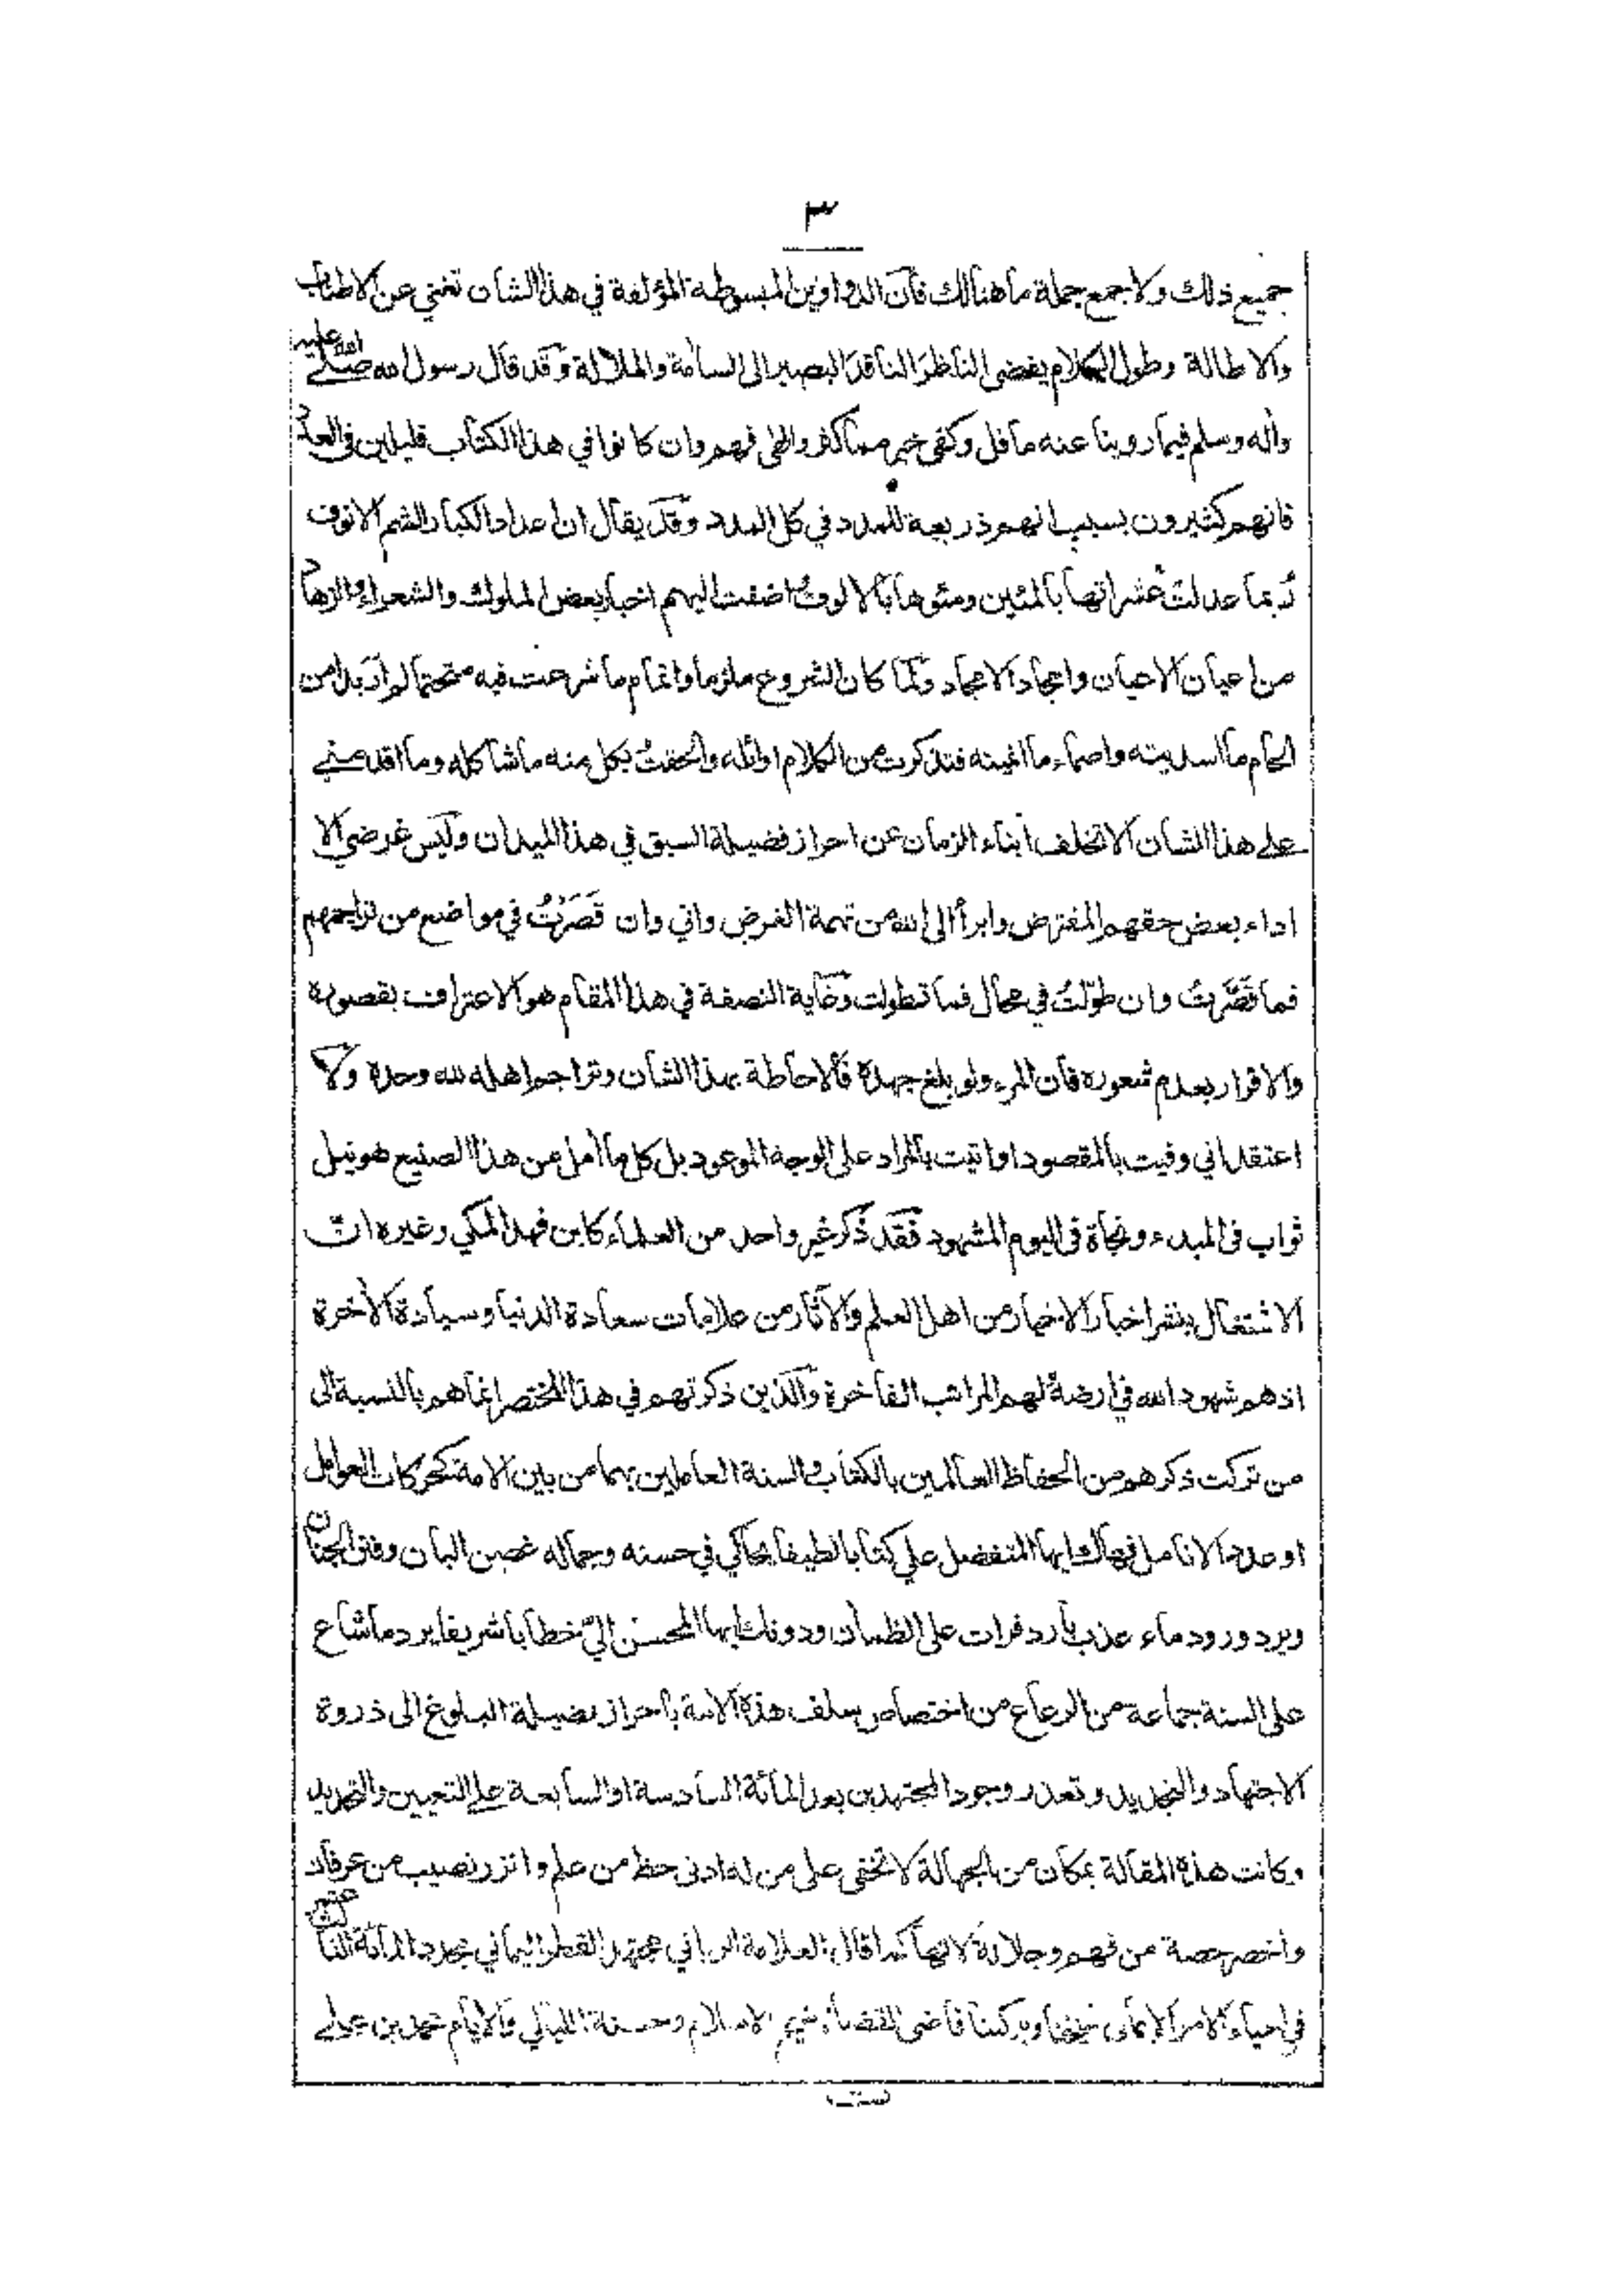 ٣
جميع ذلك ولا جمع جملة ما هنالك فان الدواوين المبسوطة المؤلفة في هذا الشان تغني عن الاطناب
والاطالة وطول الكلام يفضي الناظر الناقد البصير الى السأمة والملالة وقد قال رسول الله صلى الله عليه
واله وسلم فيما روينا عنه ما قل وكفى خير مما كثر والهى فهم وان كانوا في هذا الكتاب قليلين في العدد
فانهم كثيرون بسبب انهم ذريعة للمدد في كل المدد وقد يقال ان اعداد الكبار الشم الانوف
ربما عدلت عشراتها بالمئين ومئوها بالالوف اضفت اليهم اخبار بعض الملوك والشعراء والزهاد
من اعيان الاحيان وامجاد الامجاد ولما كان الشروع ملزما واتمام ما شرعت فيه متحتما لم ار بدا من
الحام ما اسديته واصماء ما انميته فتذكرت من الكلام اوائله والحقت بكل منه ما شاكله وما اقدمني
على هذا الشان الا تخلف ابناء الزمان عن احراز فضيلة السبق في هذا الميدان وليس غرضي الا
اداء بعض حقهم المفترض وابرأ الى الله من تهمة الغرض واني وان قصرت في مواضع من تراجمهم
فما قصرت وان طولت في مجال فما تطولت وغاية النصفة في هذا المقام هو الاعتراف بقصوره
والاقرار بعدم شعوره فان المرء ولو بلغ جهده فالاحاطة بهذا الشان وتراجم اهله لله وحده ولا
اعتقد اني وفيت بالمقصود او اتيت بالمراد على الوجه الموعود بل كل ما أمل من هذا الصنيع هو نيل
ثواب في المبدء ونجاة في اليوم المشهود فقد ذكر غير واحد من العلماء كابن فهد المكي وغيره ان
الاشتغال بنشر اخبار الاخيار من اهل العلم والآثار من علامات سعادة الدنيا وسيادة الآخرة
اذ هم شهود الله في ارضه لهم المراتب الفاخرة والذين ذكرتهم في هذا المختصر انما هم بالنسبة الى
من تركت ذكرهم من الحفاظ العالمين بالكتاب والسنة العاملين بهما من بين الامة كحركات العوامل
او عدد الانامل فهاك ايها المتفضل علي كتابا لطيفا يحاكي في حسنه وجماله غصن البان وفنن الجنان
وبرد ورود ماء عذب بارد فرات على الظمأن ودونك ايها المحسن الي خطابا شريفا يرد ما شاع
على السنة جماعة من الرعاع من اختصاص سلف هذه الامة باحراز فضيلة البلوغ الى ذروة
الاجتهاد والتجديد وتعذر وجود المجتهدين بعد المائة السادسة او السابعة على التعيين والتحديد
وكانت هذه المقالة بمكان من الجهالة لا تخفى على من له ادنى حظ من علم وانزر نصيب من عرفان
واخصر حصة من فهم وجلادة لانها كما قال العلامة الرباني مجتهد القطر اليماني مجدد المائة الثالثة عشر
في احياء الامر الايماني شيخنا وبركتنا قاضي القضاة شيخ الاسلام وحسنة الليالي والايام محمد بن علي